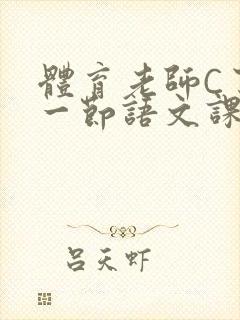 體育老師C
一節語文課
呂天虾